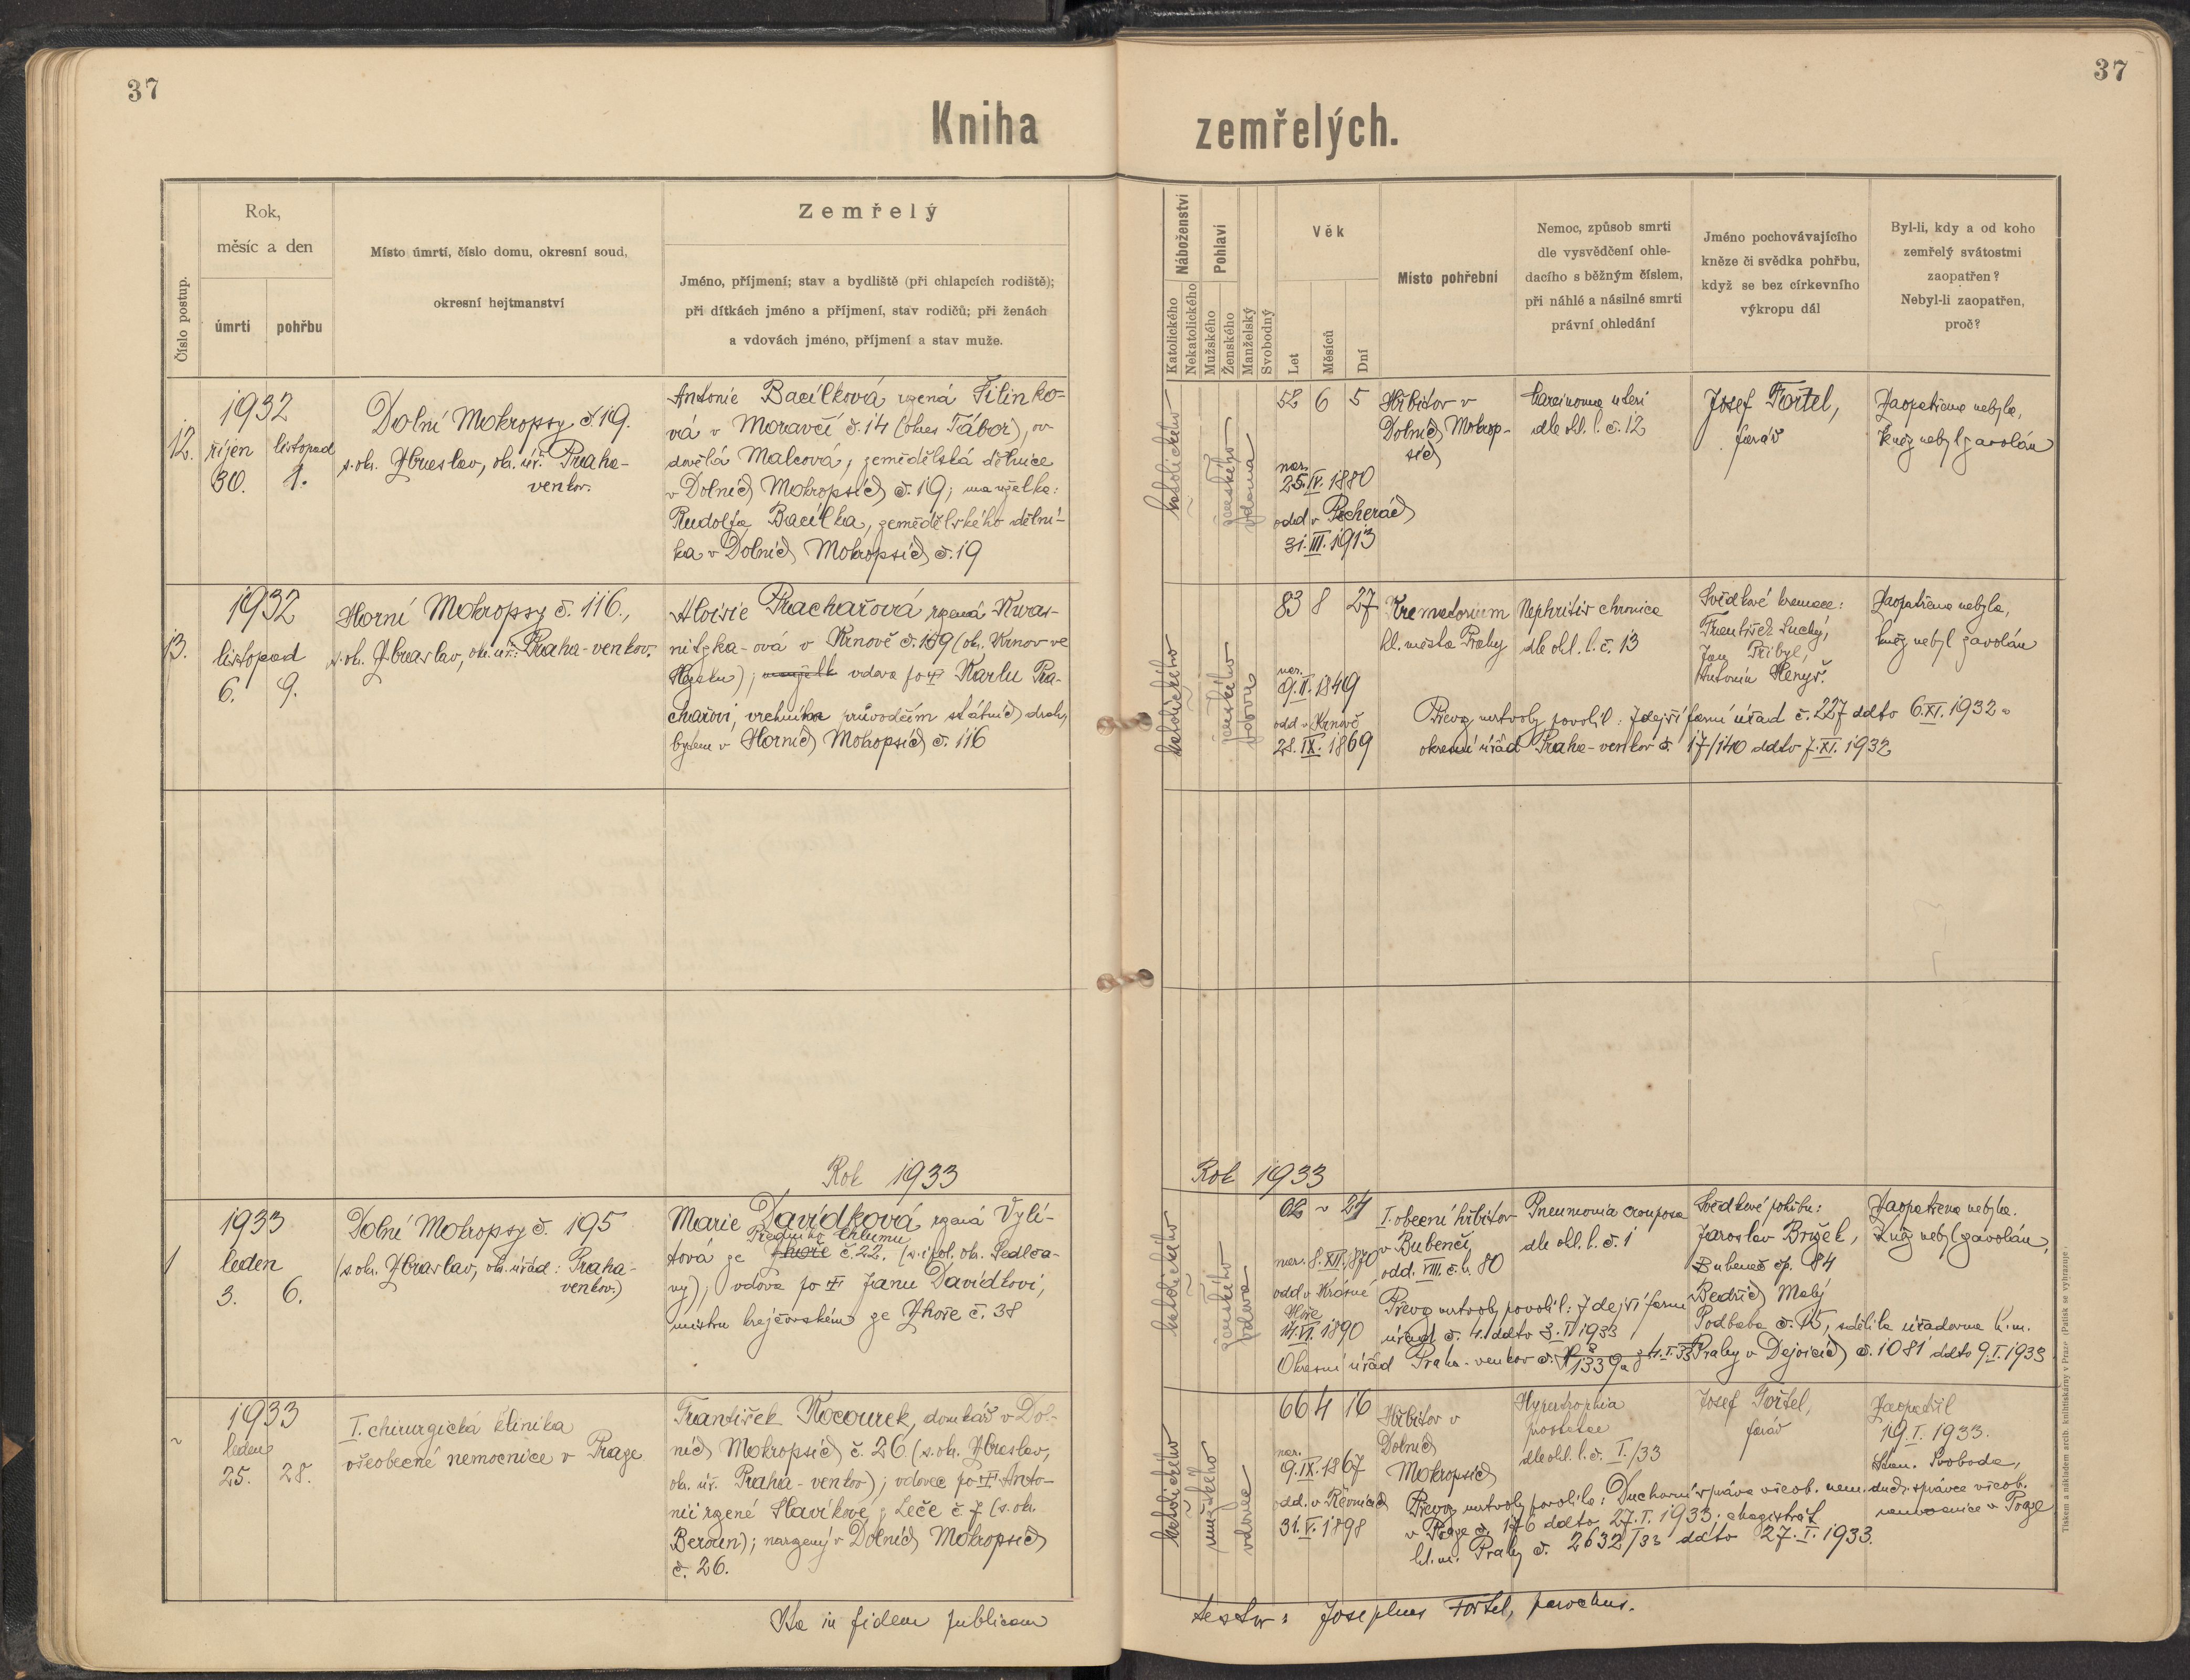 37
37
Kniha zemřelých.
Číslo postup.
Rok,
měsíc a den
úmrtí
pohřbu
Místo úmrtí, číslo domu, okresní soud,
okresní hejtmanství
Zemřelý
Jméno, příjmení; stav a bydliště (při chlapcích rodiště);
při dítkách jméno a příjmení, stav rodičů; při ženách
a vdovách jméno, příjmení a stav muže.
Náboženství
Katolického
Nekatolického
Pohlaví
Mužského
Ženského
Manželský
Svobodný
Věk
Let
Měsíců
Dní
Místo pohřební
Nemoc, způsob smrti
dle vysvědčení ohle-
dacího s běžným číslem,
při náhlé a násilné smrti
právní ohledání
Jméno pochovávajícího
kněze či svědka pohřbu,
když se bez církevního
výkropu dál
Byl-li, kdy a od koho
zemřelý svátostmi
zaopatřen?
Nebyl-li zaopatřen,
proč?
12.
1932
říjen listopad
30. 1.
Dolní Mokropsy č. 19.
s. ok. Zbraslav, ok. úř. Praha-
venkov.
Antonie Bacílková rozená Filinko-
vá v Moravčí č. 14 (okres Tábor), ov
dovělá Malcová, zemědělská dělnice
v Dolních Mokropsích č. 19; manželka
Rudolfa Bacílka, zemědělského dělní-
ka v Dolních Mokropsích č. 19
katolického
ženského
vdaná
52 6 5
nar.
25. IV. 1880
odd. v Pecherách
31. III. 1913
Hřbitov v
Dolních Mokrop-
sích
Karcinoma uteri
dle ohl. l. č. 12
Josef Fořtel,
farář
Zaopatřena nebyla,
kněz nebyl zavolán
13.
1932
listopad
6. 9.
Horní Mokropsy č. 116.,
s. ok. Zbraslav, ok. úř.: Praha-venkov.
Aloisie Prachařová rozená Kwas-
nitzka-ová v Krnově č. 189 (ok. Krnov ve
Slezsku); manželk vdova po † Karlu Pra-
chařovi, vrchním průvodčím státních drah,
bytem v Horních Mokropsích č. 116
katolického
ženského
vdova
83 8 27
nar.
9. II. 1849
odd. v Krnově
28. IX. 1869
Krematorium
hl. města Prahy
Nephritis chronica
dle ohl. l. č. 13
Svědkové kremace:
František Suchý,
Jan Přibyl,
Antonín Henyš.
Zaopatřena nebyla,
kněz nebyl zavolán
Převoz mrtvoly povolil: Zdejší farní úřad č. 227 ddto 6. XI. 1932 a
okresní úřad Praha-venkov č. 17/140 ddto 7. XI. 1932
Rok 1933
Rok 1933
1
1933
leden
3. 6.
Dolní Mokropsy č. 195
(s. ok. Zbraslav, ok. úřad: Praha-
venkov.)
Marie Davídková rozená Vylí-
Předního Chlumu
tová ze Zhoře č. 22. (s. i pol. ok. Sedlča-
ny); vdova po † Janu Davídkovi,
mistru krejčovském ze Zhoře č. 38
katolického
ženského
vdova
62 ~ 24
nar. 8. XII. 1870
odd. v Krásné
Hoře
14. VI. 1890
I. obecní hřbitov
v Bubenči
odd. VIII. č. h. 80
Pneumonia crouposa
dle ohl. l. č. 1
Svědkové pohřbu:
Jaroslav Brížek,
Bubeneč čp. 84
Bedřich Malý
Podbaba č. 15, sdělila úřadovna h. m.
Prahy v Dejvicích č. 1081 ddto 9. I. 1933
Zaopatřena nebyla.
Kněz nebyl zavolán,
Převoz mrtvoly povolil: Zdejší farní
úřad č. 4. ddto 3. I. 1933
Okresní úřad Praha-venkov č. 1339a z 4. I. 33
1933
leden
25. 28.
I. chirurgická klinika
všeobecné nemocnice v Praze
František Kocourek, domkář v Dol-
ních Mokropsích č. 26 (s. ok. Zbraslav,
ok. úř. Praha-venkov); vdovec po † Anto-
nii rozené Slavíkové z Leče č. 7 (s. ok.
Beroun); narozený v Dolních Mokropsích
č. 26.
katolického
mužského
vdovec
66 4 16
nar.
9. IX. 1867
odd. v Řevnicích
31. V. 1898
Hřbitov v
Dolních
Mokropsích
Hypertrophia
prostatae
dle ohl. l. č. I./33
Josef Fořtel,
farář
Zaopatřil
19. I. 1933.
Svoboda,
duch. správce všeob.
nemocnice v Praze
Převoz mrtvoly povolila: Duchovní správa všeob. nem.
v Praze č. 176 ddto 27. I. 1933; magistrát
hl. m. Prahy č. 2632/33 ddto 27. I. 1933.
Ita in fidem publicam
testor: Josephus Fořtel, parochus.
Tiskem a nákladem arcib. knihtiskárny v Praze (Patisk se vyhrazuje.